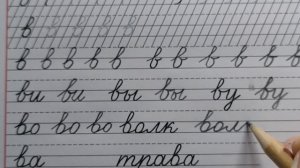 в в в в в в
в в в в в в в в в в в
ви ви вы вы ву ву
во во во волк вол
ва трава